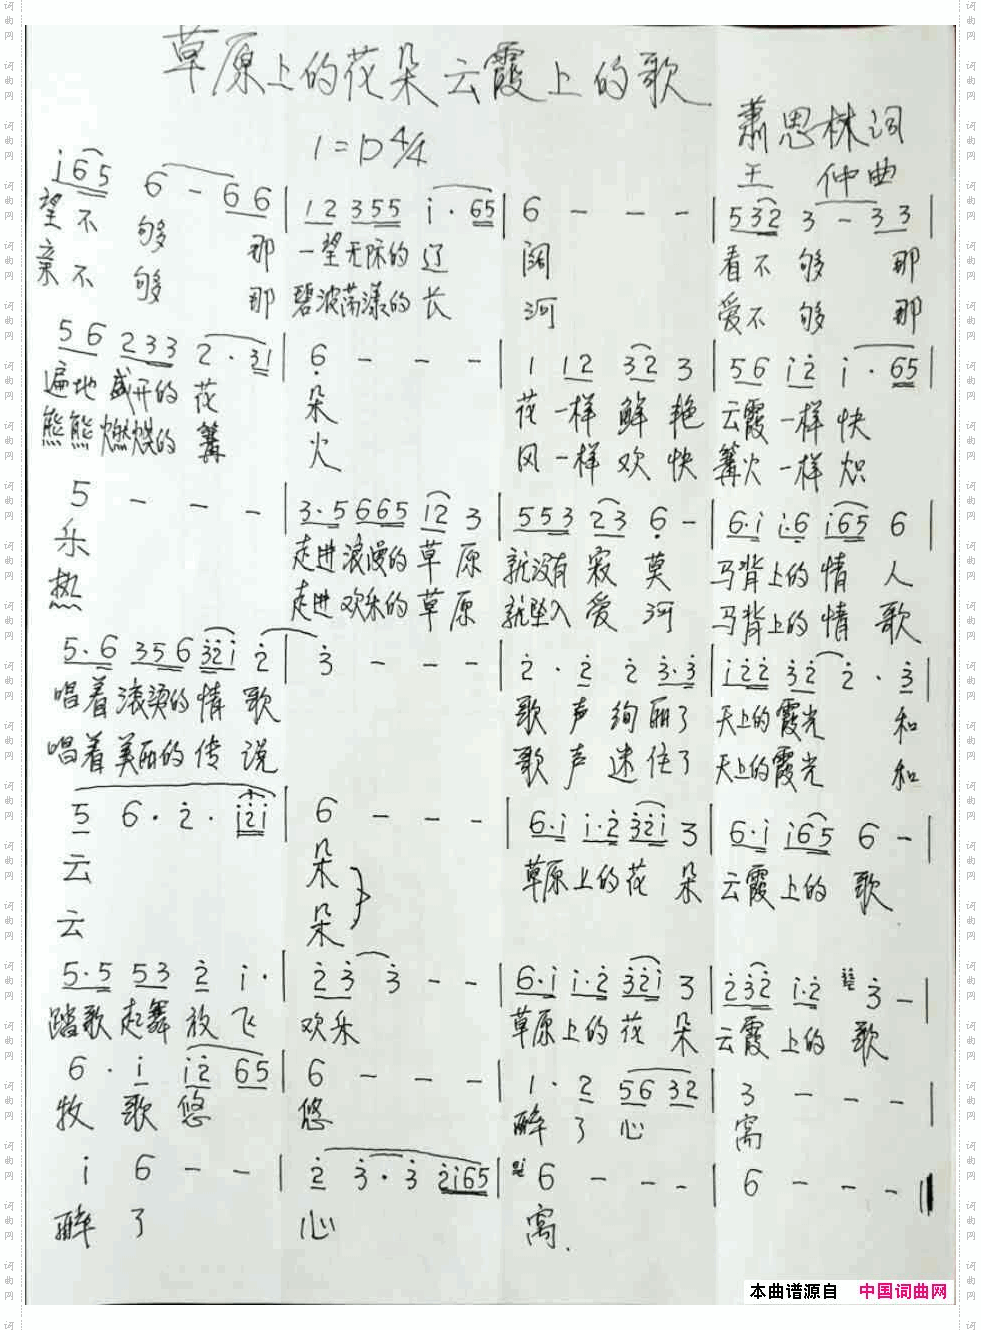 草原上的花朵云霞上的歌
1=D 4/4
萧思林词
王 仲曲
i65 6 - 66 | 12 355 i·65 | 6 - - - | 532 3 - 33 |
望不够 那 一望无际的辽 阔 看不够 那
亲不够 那 碧波荡漾的长 河 爱不够 那
56 233 2·31 | 6 - - - | 1 12 32 3 | 56 i2 i·65 |
遍地盛开的花 朵 花一样鲜艳 云霞一样快
熊熊燃烧的篝 火 风一样欢快 篝火一样炽
5 - - - | 3·5 665 i2 3 | 553 23 6 - | 6·i i·6 i65 6 |
乐 走进浪漫的草原 就没有寂莫 马背上的情人
热 走进欢乐的草原 就坠入爱河 马背上的情歌
5·6 356 32i 2 | 3 - - - | 2·2 2 3·3 | i22 32 2·3 |
唱着滚烫的情歌 歌声绚丽了 天上的霞光 和
唱着美丽的传说 歌声迷住了 天上的霞光 和
5 6·2·i2i | 6 - - - | 6·i i·2 32i 3 | 6·i i65 6 - |
云 朵 草原上的花朵 云霞上的歌
云 朵
5·5 53 2 i· | 2 3 3 - - | 6·i i·2 32i 3 | 232 i·2 3 - |
踏歌起舞放飞 欢乐 草原上的花朵 云霞上的歌
6·i i2 65 | 6 - - - | 1·2 56 32 | 3 - - - |
牧歌悠 悠 醉了心 窝
i 6 - - | 2 3·3 2i65 | 6 - - - | 6 - - - ‖
醉了 心 窝.
本曲谱源自 中国词曲网
词曲网